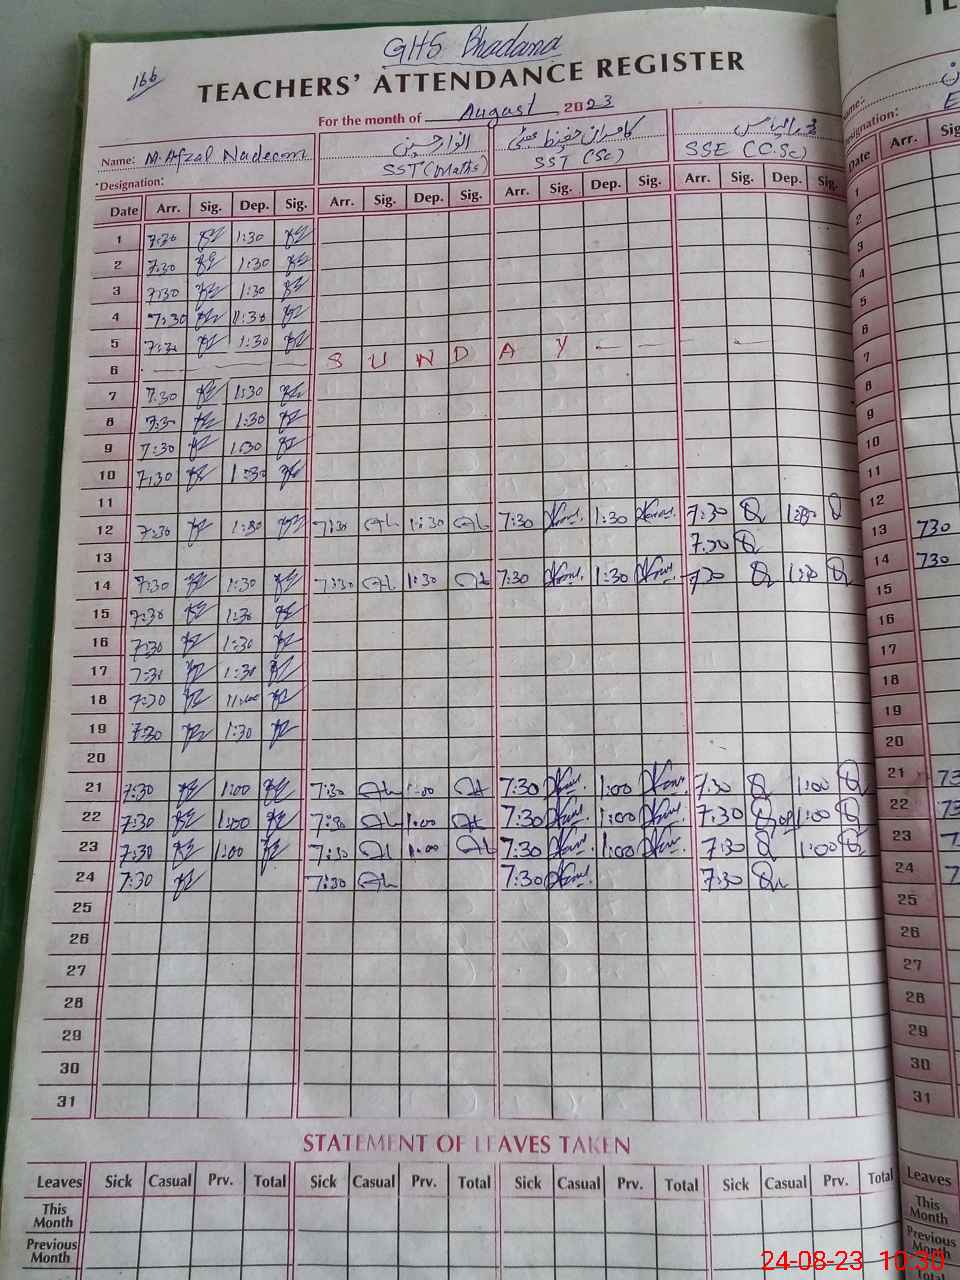 GHS Bhadana
166
TEACHERS' ATTENDANCE REGISTER
For the month of August 2023
Name: M. Afzal Nadeem انوار حسین کامران حفیظ محمد الیاس
Designation: SST (Maths) SST (Sc) SSE (C.Sc)
Date Arr. Sig. Dep. Sig. Arr. Sig. Dep. Sig. Arr. Sig. Dep. Sig. Arr. Sig. Dep. Sig.
1 7:30 1:30
2 7:30 1:30
3 7:30 1:30
4 7:30 1:30
5 7:30 1:30
6 S U N D A Y
7 7:30 1:30
8 7:30 1:30
9 7:30 1:30
10 7:30 1:30
11
12 7:30 1:30 7:30 1:30 7:30 1:30 7:30
13 7:30
14 7:30 1:30 7:30 1:30 7:30 1:30 730
15 7:30 1:30
16 7:30 1:30
17 7:30 1:30
18 7:30 11:00
19 7:30 1:30
20
21 7:30 1:00 7:30 1:00 7:30 1:00 7:30 1:00
22 7:30 1:00 7:30 1:00 7:30 1:00 7:30 1:00
23 7:30 1:00 7:30 1:00 7:30 1:00 7:30 1:00
24 7:30 7:30 7:30 7:30
25
26
27
28
29
30
31
STATEMENT OF LEAVES TAKEN
Leaves Sick Casual Prv. Total Sick Casual Prv. Total Sick Casual Prv. Total Sick Casual Prv. Total
This Month
Previous Month
TE
Designation:
Date Arr. Sig
1
2
3
4
5
6
7
8
9
10
11
12
13 730
14 730
15
16
17
18
19
20
21
22
23
24
25
26
27
28
29
30
31
Leaves
This Month
Previous Month
24-08-23 10:30